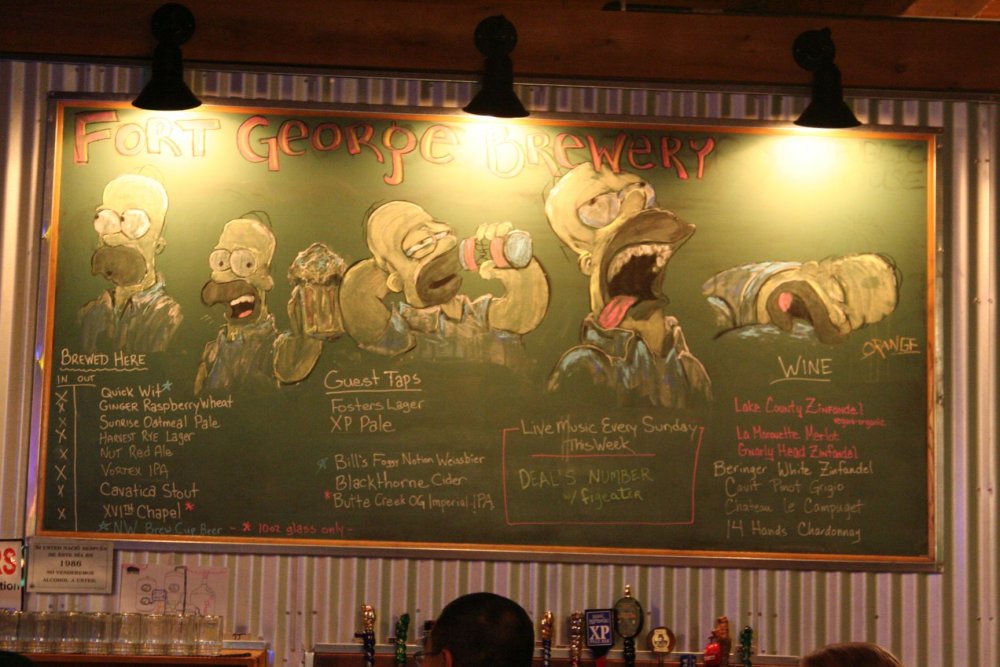 FORT GEORGE BREWERY
ORANGE
BREWED HERE
IN OUT
X QUICK WIT*
X GINGER RASPBERRY WHEAT
X SUNRISE OATMEAL PALE
X HARVEST RYE LAGER
NUT RED ALE
X VORTEX IPA
X CAVATICA STOUT
X XVITH CHAPEL *
* NW BREW CUP BEER - * 10oz glass only -
GUEST TAPS
FOSTERS LAGER
XP PALE
* BILL'S FOGGY NOTION WEISSBIER
BLACKTHORNE CIDER
* BUTTE CREEK OG IMPERIAL IPA
LIVE MUSIC EVERY SUNDAY
THIS WEEK
DEAL'S NUMBER
w/ figeater
WINE
Lake County Zinfandel
vegan-organic
La Marouette Merlot
Gnarly Head Zinfandel
Beringer White Zinfandel
Cavit Pinot Grigio
Chateau le Campuget
14 Hands Chardonnay
SI USTED NACIÓ DESPUÉS
DE ESTE DÍA EN
1986
NO VENDEREMOS
ALCOHOL A USTED.
XP